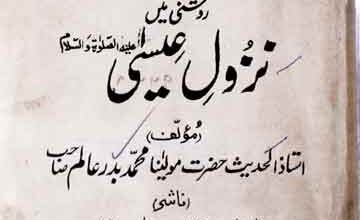 روشنی میں
نزولِ عیسیٰ علیہ الصلوٰۃ والسلام
(مؤلف)
استاذ الحدیث حضرت مولینا محمد بدر عالم صاحب
(ناشر)